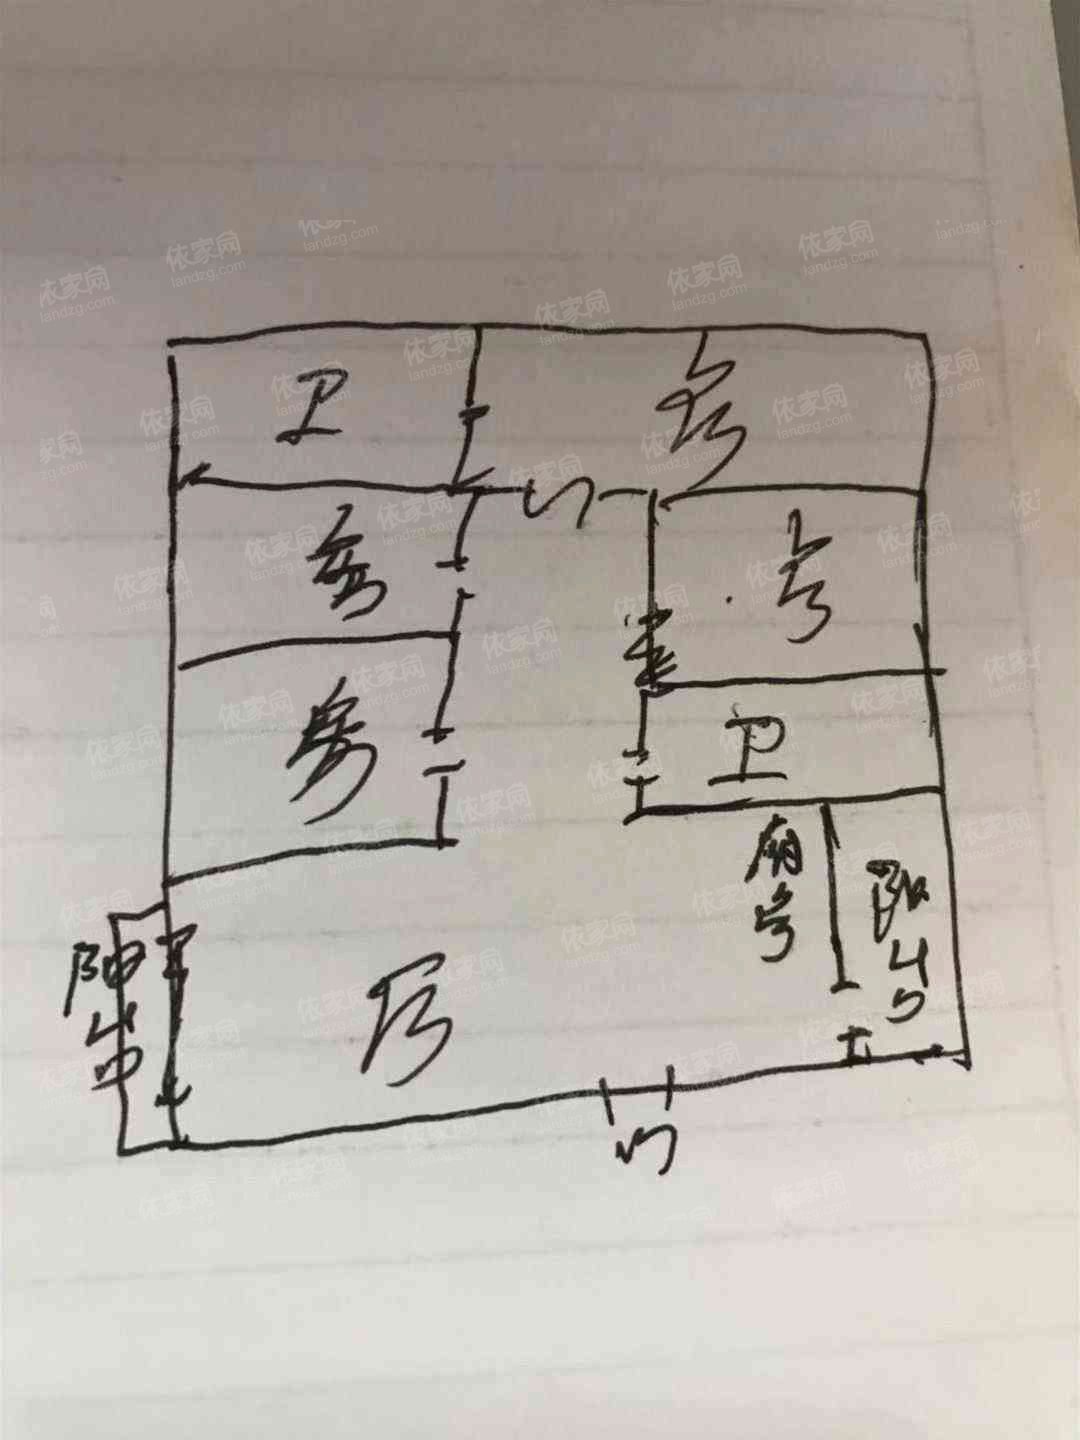 卫
房
门
房
房
房
卫
厨
房
阳
台
阳
台
厅
门
依家网
landzg.com